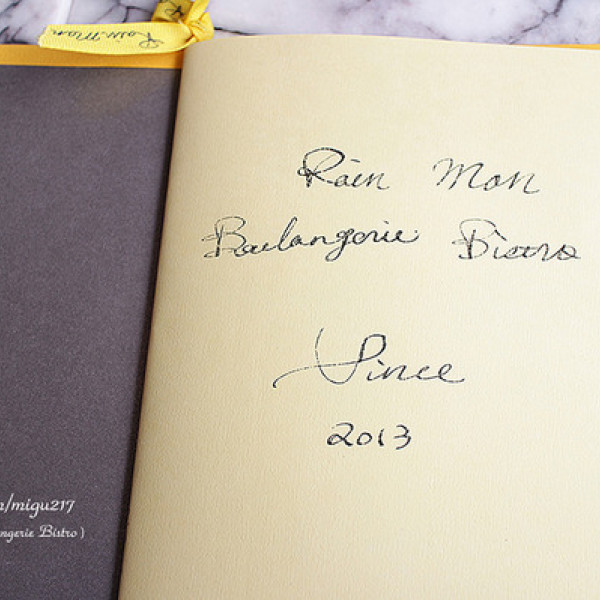 Rain Man
Rain Man
Boulangerie Bistro
Since
2013
/migu217
ngerie Bistro )